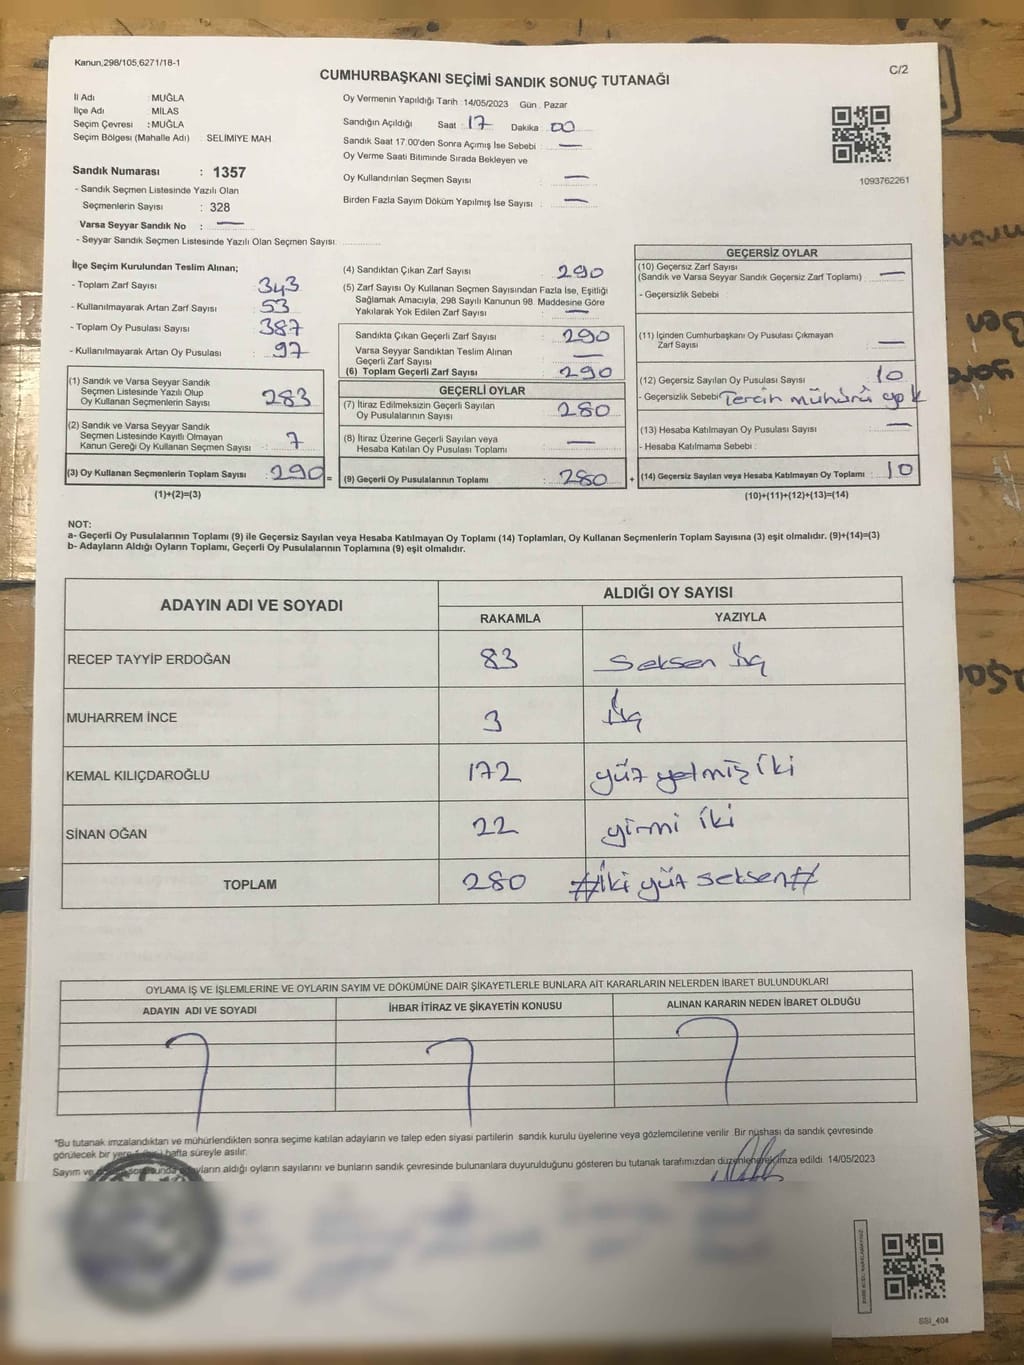 Kanun,298/105,6271/18-1
C/2
CUMHURBAŞKANI SEÇİMİ SANDIK SONUÇ TUTANAĞI
İl Adı : MUĞLA
İlçe Adı : MİLAS
Seçim Çevresi : MUĞLA
Seçim Bölgesi (Mahalle Adı) : SELİMİYE MAH
Sandık Numarası : 1357
- Sandık Seçmen Listesinde Yazılı Olan
Seçmenlerin Sayısı : 328
Varsa Seyyar Sandık No : —
- Seyyar Sandık Seçmen Listesinde Yazılı Olan Seçmen Sayısı:
Oy Vermenin Yapıldığı Tarih : 14/05/2023 Gün : Pazar
Sandığın Açıldığı Saat : 17 Dakika : 00
Sandık Saat 17.00'den Sonra Açımış İse Sebebi : —
Oy Verme Saati Bitiminde Sırada Bekleyen ve
Oy Kullandırılan Seçmen Sayısı : —
Birden Fazla Sayım Döküm Yapılmış İse Sayısı : —
1093762261
İlçe Seçim Kurulundan Teslim Alınan;
- Toplam Zarf Sayısı : 343
- Kullanılmayarak Artan Zarf Sayısı : 53
- Toplam Oy Pusulası Sayısı : 387
- Kullanılmayarak Artan Oy Pusulası : 97
(1) Sandık ve Varsa Seyyar Sandık
Seçmen Listesinde Yazılı Olup
Oy Kullanan Seçmenlerin Sayısı : 283
(2) Sandık ve Varsa Seyyar Sandık
Seçmen Listesinde Kayıtlı Olmayan
Kanun Gereği Oy Kullanan Seçmen Sayısı : 7
(3) Oy Kullanan Seçmenlerin Toplam Sayısı : 290 =
(1)+(2)=(3)
(4) Sandıktan Çıkan Zarf Sayısı : 290
(5) Zarf Sayısı Oy Kullanan Seçmen Sayısından Fazla İse, Eşitliği
Sağlamak Amacıyla, 298 Sayılı Kanunun 98. Maddesine Göre
Yakılarak Yok Edilen Zarf Sayısı : —
Sandıkta Çıkan Geçerli Zarf Sayısı : 290
Varsa Seyyar Sandıktan Teslim Alınan
Geçerli Zarf Sayısı : —
(6) Toplam Geçerli Zarf Sayısı : 290
GEÇERLİ OYLAR
(7) İtiraz Edilmeksizin Geçerli Sayılan
Oy Pusulalarının Sayısı : 280
(8) İtiraz Üzerine Geçerli Sayılan veya
Hesaba Katılan Oy Pusulası Toplamı : —
(9) Geçerli Oy Pusulalarının Toplamı : 280 +
GEÇERSİZ OYLAR
(10) Geçersiz Zarf Sayısı
(Sandık ve Varsa Seyyar Sandık Geçersiz Zarf Toplamı) : —
- Geçersizlik Sebebi :
(11) İçinden Cumhurbaşkanı Oy Pusulası Çıkmayan
Zarf Sayısı : —
(12) Geçersiz Sayılan Oy Pusulası Sayısı : 10
- Geçersizlik Sebebi : Tercih mühürü yok
(13) Hesaba Katılmayan Oy Pusulası Sayısı : —
- Hesaba Katılmama Sebebi :
(14) Geçersiz Sayılan veya Hesaba Katılmayan Oy Toplamı : 10
(10)+(11)+(12)+(13)=(14)
NOT:
a- Geçerli Oy Pusulalarının Toplamı (9) ile Geçersiz Sayılan veya Hesaba Katılmayan Oy Toplamı (14) Toplamları, Oy Kullanan Seçmenlerin Toplam Sayısına (3) eşit olmalıdır. (9)+(14)=(3)
b- Adayların Aldığı Oyların Toplamı, Geçerli Oy Pusulalarının Toplamına (9) eşit olmalıdır.
ADAYIN ADI VE SOYADI
ALDIĞI OY SAYISI
RAKAMLA YAZIYLA
RECEP TAYYİP ERDOĞAN 83 Seksen Üç
MUHARREM İNCE 3 Üç
KEMAL KILIÇDAROĞLU 172 yüz yetmiş iki
SİNAN OĞAN 22 yirmi iki
TOPLAM 280 #İki yüz seksen#
OYLAMA İŞ VE İŞLEMLERİNE VE OYLARIN SAYIM VE DÖKÜMÜNE DAİR ŞİKAYETLERLE BUNLARA AİT KARARLARIN NELERDEN İBARET BULUNDUKLARI
ADAYIN ADI VE SOYADI İHBAR İTİRAZ VE ŞİKAYETİN KONUSU ALINAN KARARIN NEDEN İBARET OLDUĞU
*Bu tutanak imzalandıktan ve mühürlendikten sonra seçime katılan adayların ve talep eden siyasi partilerin sandık kurulu üyelerine veya gözlemcilerine verilir. Bir nüshası da sandık çevresinde
görülecek bir yere 1 (bir) hafta süreyle asılır.
Sayım ve adayların aldığı oyların sayılarını ve bunların sandık çevresinde bulunanlara duyurulduğunu gösteren bu tutanak tarafımızdan düzenlenerek imza edildi. 14/05/2023
SSI_404